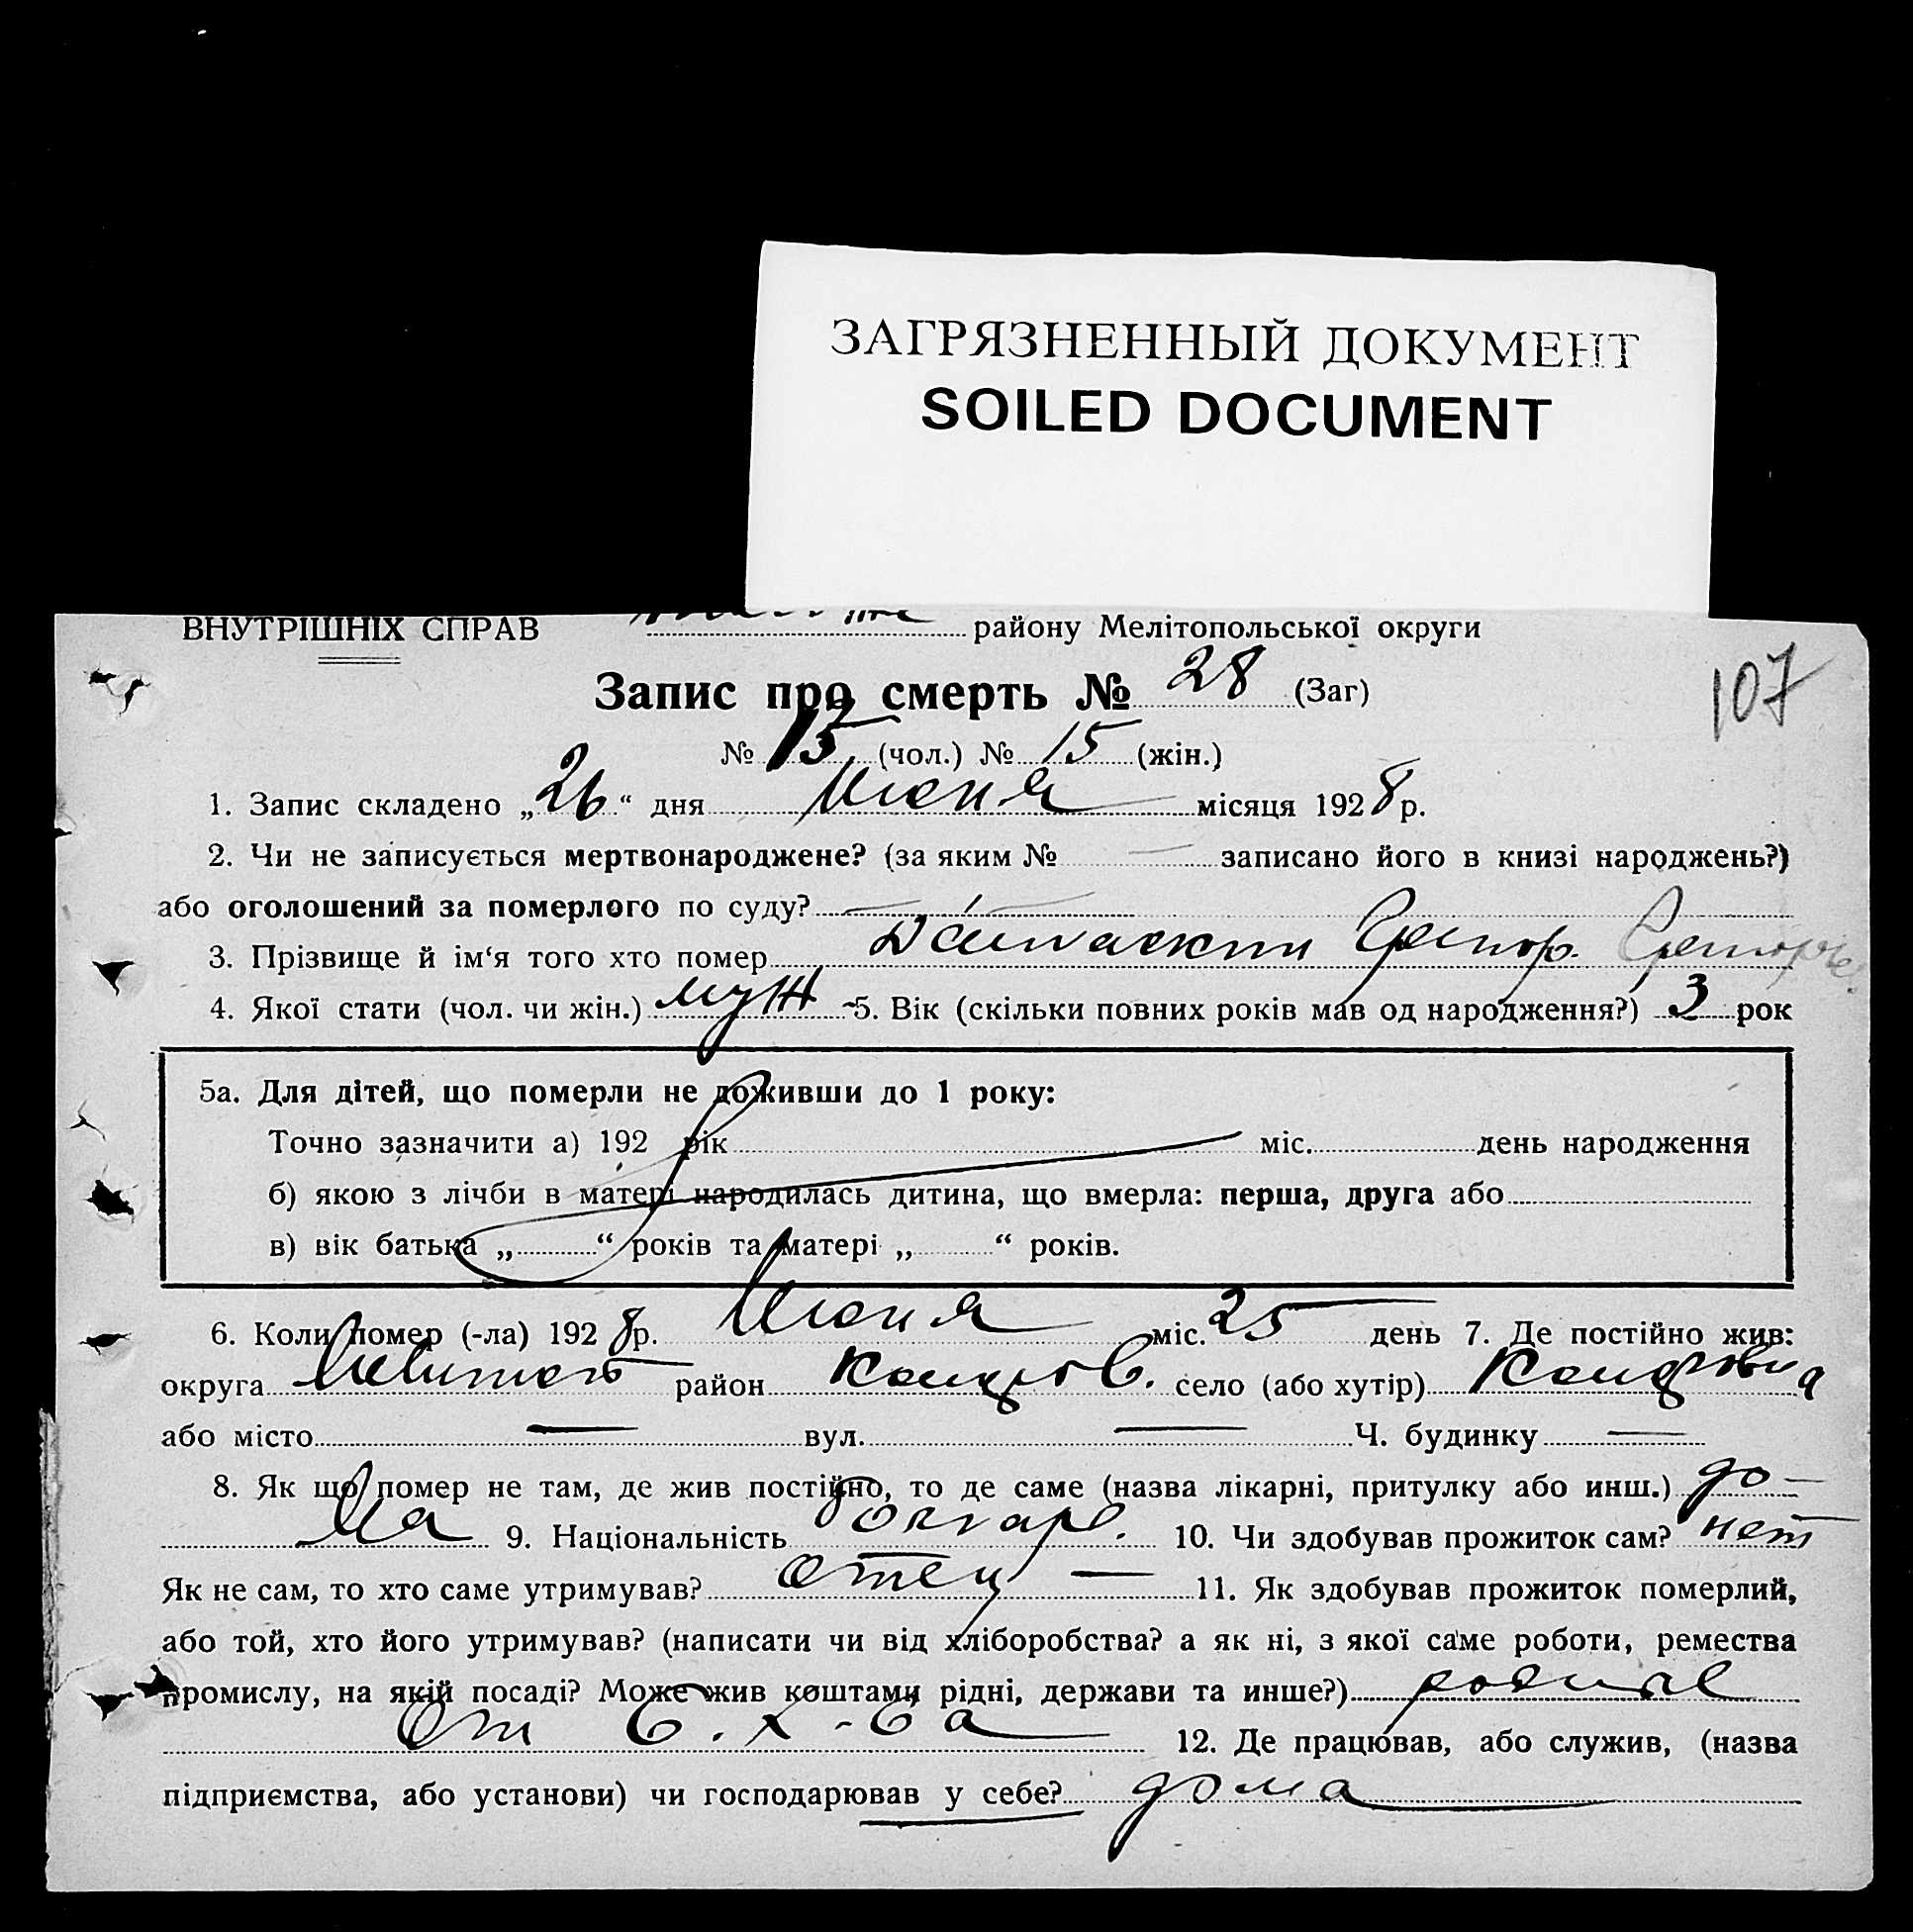 ЗАГРЯЗНЕННЫЙ ДОКУМЕНТ
SOILED DOCUMENT
ВНУТРІШНІХ СПРАВ району Мелітопольської округи
107
Запис про смерть № 28 (Заг)
№ 15 (чол.) № 15 (жін.)
1. Запис складено „26“ дня Июня місяця 1928 р.
2. Чи не записується мертвонароджене? (за яким № — записано його в книзі народжень?)
або оголошений за померлого по суду? —
3. Прізвище й ім‘я того хто помер
4. Якої стати (чол. чи жін.) муж 5. Вік (скільки повних років мав од народження?) 3 рок
5а. Для дітей, що померли не доживши до 1 року:
Точно зазначити а) 192 рік міс. день народження
б) якою з лічби в матері народилась дитина, що вмерла: перша, друга або
в) вік батька „ “ років та матері „ “ років.
6. Коли помер (-ла) 1928 р. Июня міс. 25 день 7. Де постійно жив:
округа Мелитоп район село (або хутір)
або місто — вул. — Ч. будинку —
8. Як що помер не там, де жив постійно, то де саме (назва лікарні, притулку або инш.) до-
ма 9. Національність болгар. 10. Чи здобував прожиток сам? нет
Як не сам, то хто саме утримував? отец — 11. Як здобував прожиток померлий,
або той, хто його утримував? (написати чи від хліборобства? а як ні, з якої саме роботи, ремества
промислу, на якій посаді? Може жив коштами рідні, держави та инше?)
От С. Х-ва 12. Де працював, або служив, (назва
підприємства, або установи) чи господарював у себе? дома